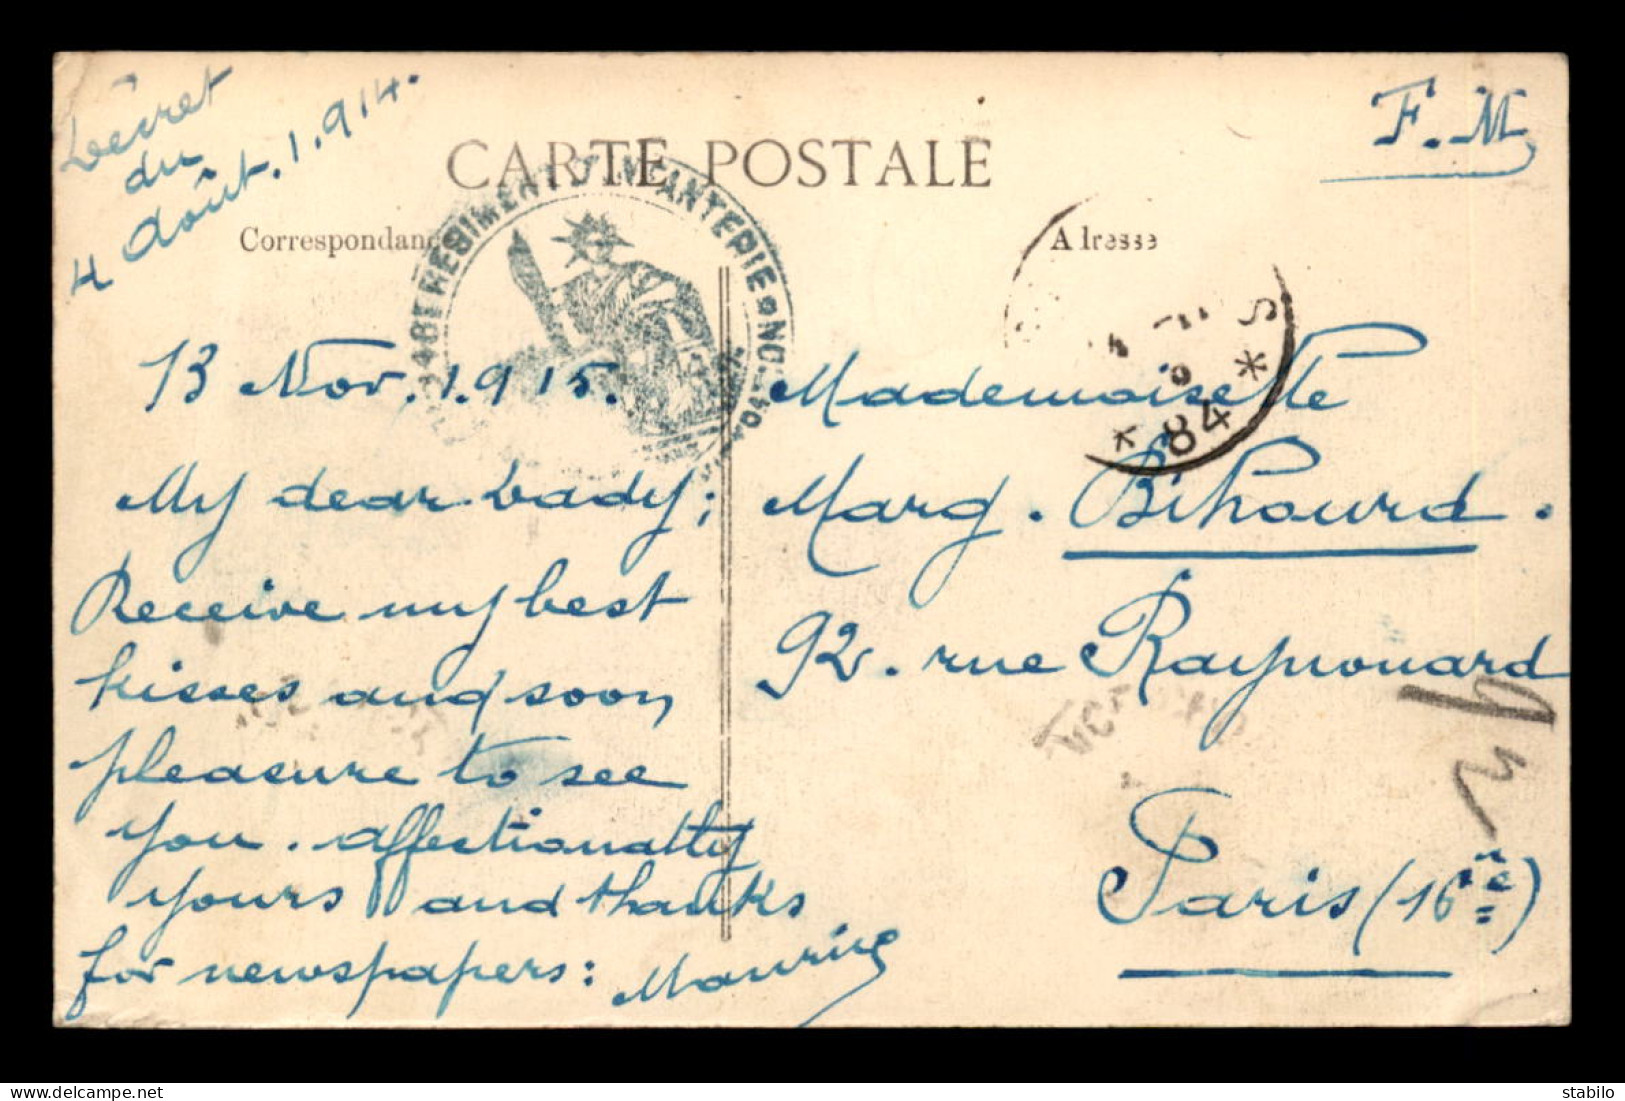 Décret
du
4 Août. 1.914.
F.M
CARTE POSTALE
Correspondanc
A lresse
REGIMENT D'INFANTERIE
* 84 *
13 Nov. 1.915.
My dear Lady;
Receive my best
kisses and soon
pleasure to see
you. affectionatly
yours and thanks
for newspapers:
Maurice
Mademoiselle
Marg. Bihourd.
92. rue Raynouard
Paris (16
stabilo